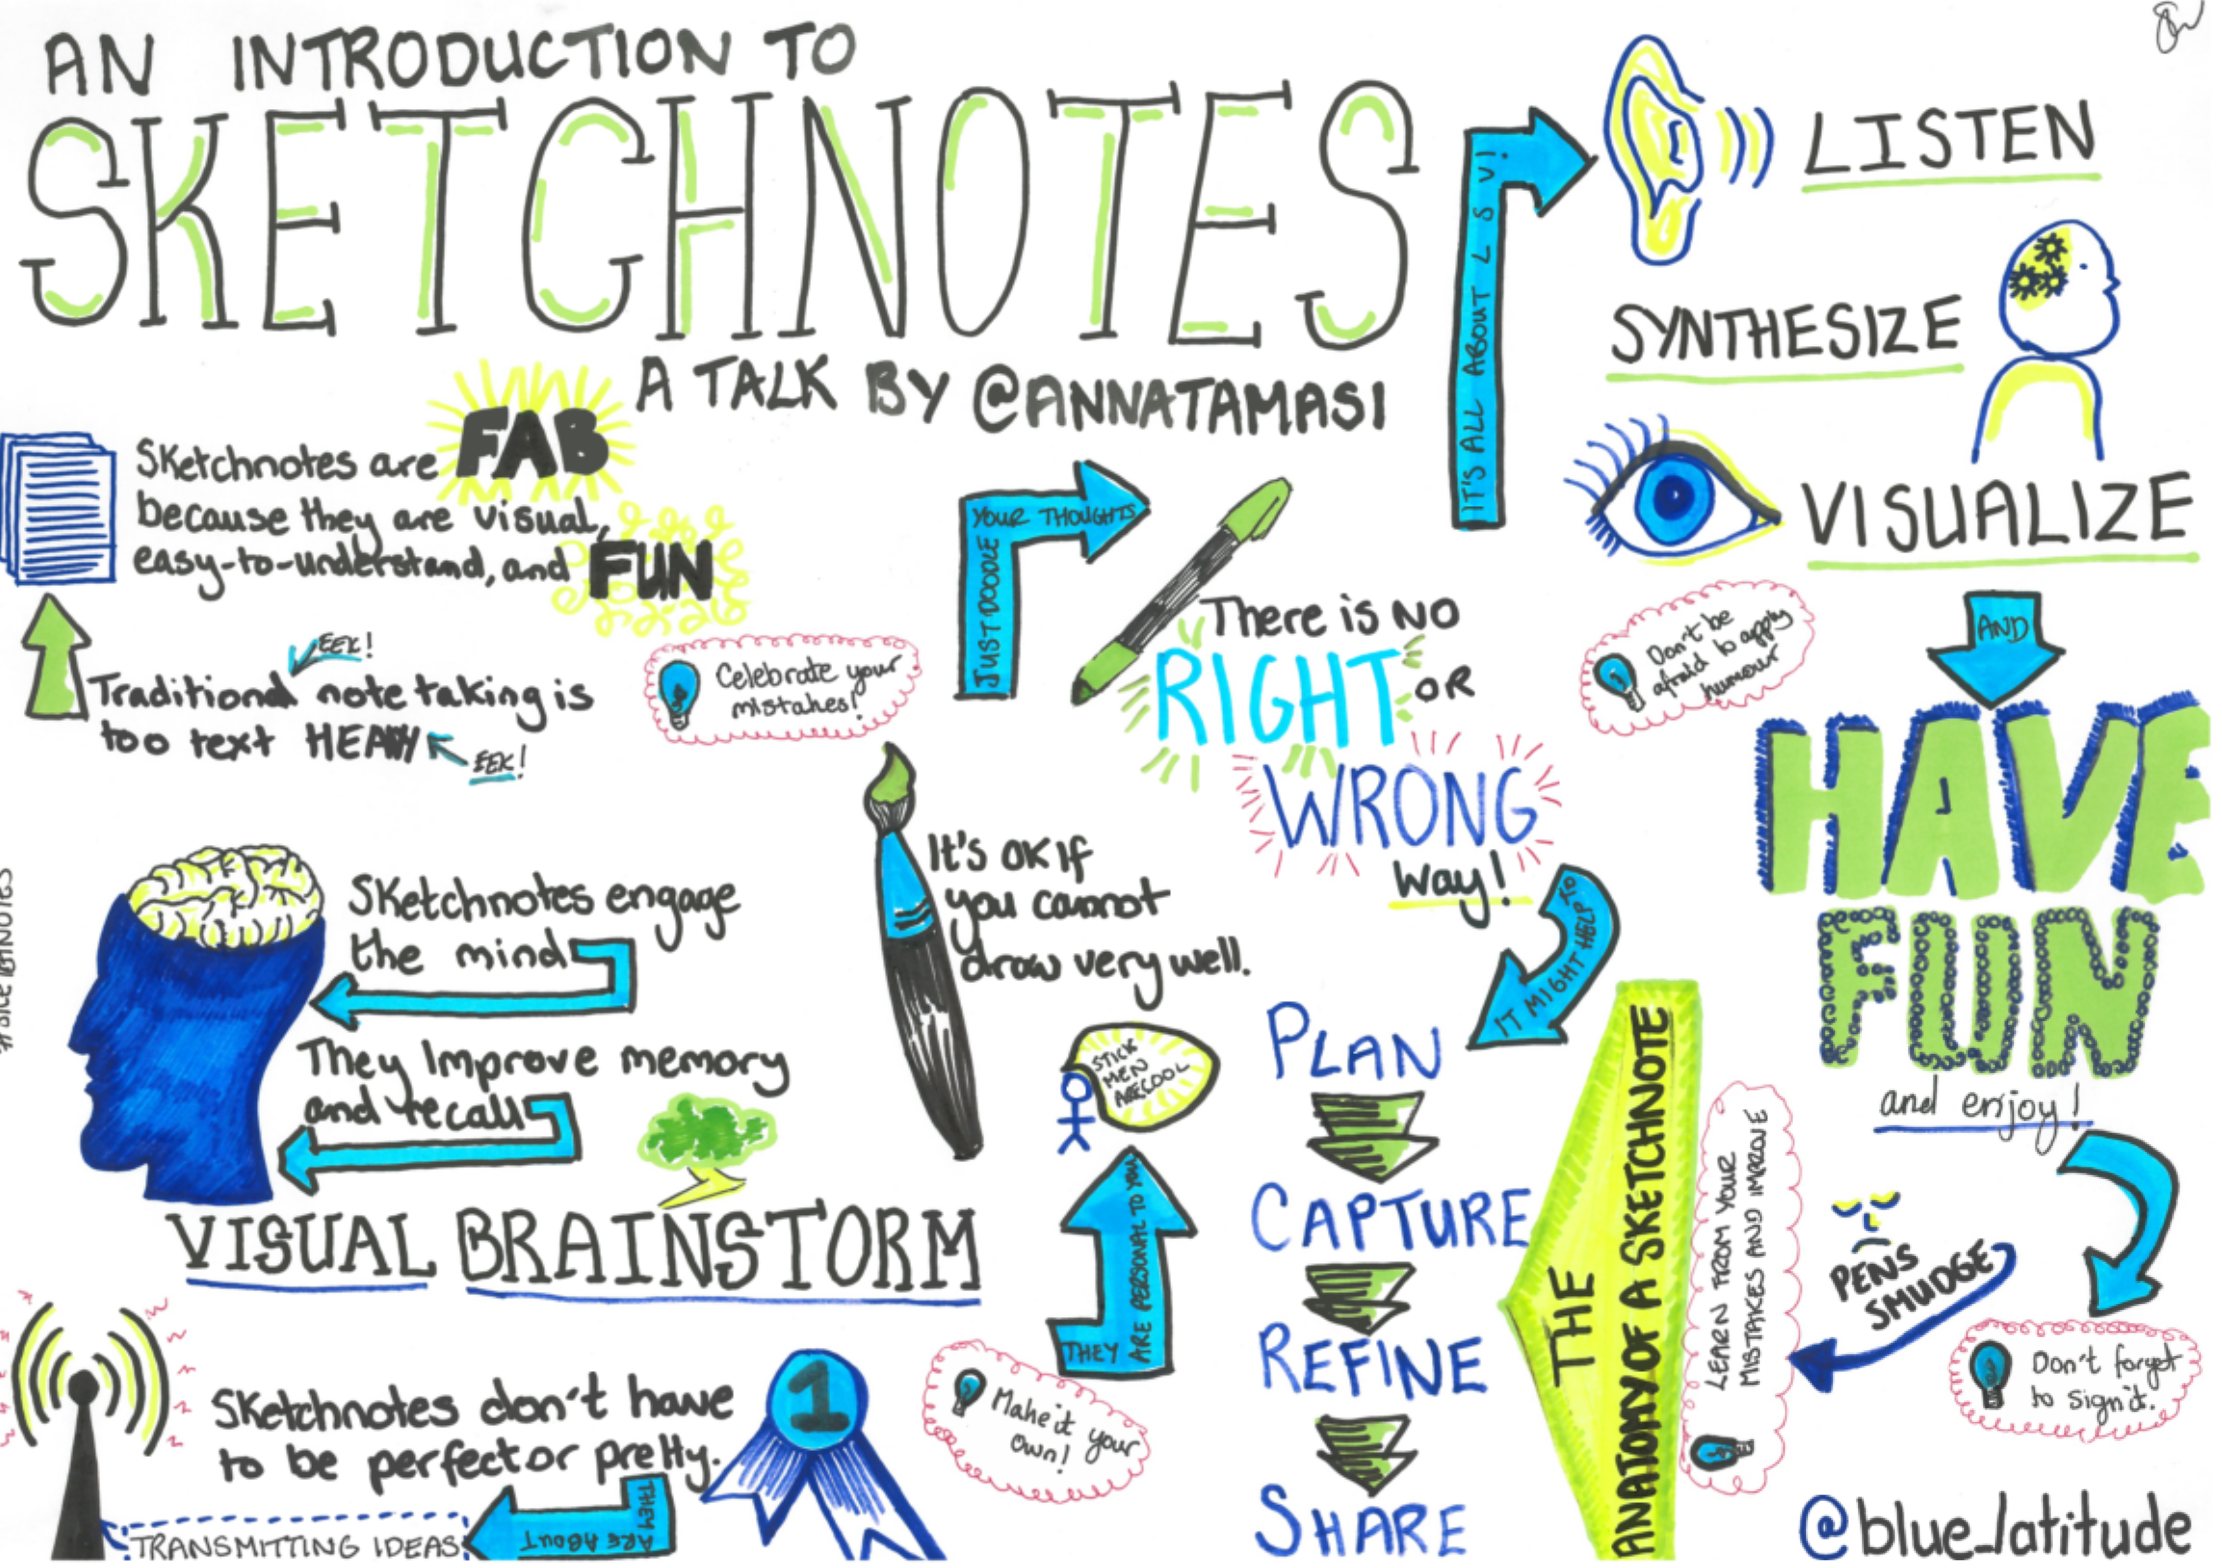 AN INTRODUCTION TO
SKETCHNOTES
A TALK BY @ANNATAMASI
Sketchnotes are FAB
because they are visual,
easy-to-understand, and FUN
EEK!
Traditional note taking is
too text HEAVY
EEK!
Celebrate your
mistakes!
JUST DOODLE
YOUR THOUGHTS
There is NO
RIGHT OR
WRONG
Way!
IT'S ALL ABOUT L S V!
LISTEN
SYNTHESIZE
VISUALIZE
Don't be
afraid to apply
humour
AND
HAVE
FUN
and enjoy!
Sketchnotes engage
the mind
They Improve memory
and recall
VISUAL BRAINSTORM
It's OK if
you cannot
draw very well.
STICK
MEN
ARE COOL
THEY
ARE PERSONAL TO YOU
Make it your
own!
Sketchnotes don't have
to be perfect or pretty.
1
THEY
ARE ABOUT
TRANSMITTING IDEAS
IT MIGHT HELP TO
PLAN
CAPTURE
REFINE
SHARE
THE
ANATOMY OF A SKETCHNOTE
LEARN FROM YOUR
MISTAKES AND IMPROVE
PENS
SMUDGE
Don't forget
to sign it.
@blue_latitude